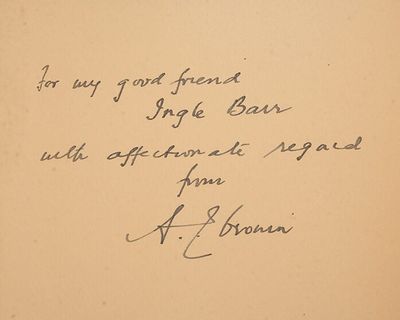 For my good friend
Ingle Barr
with affectionate regard
from
A. J. Cronin